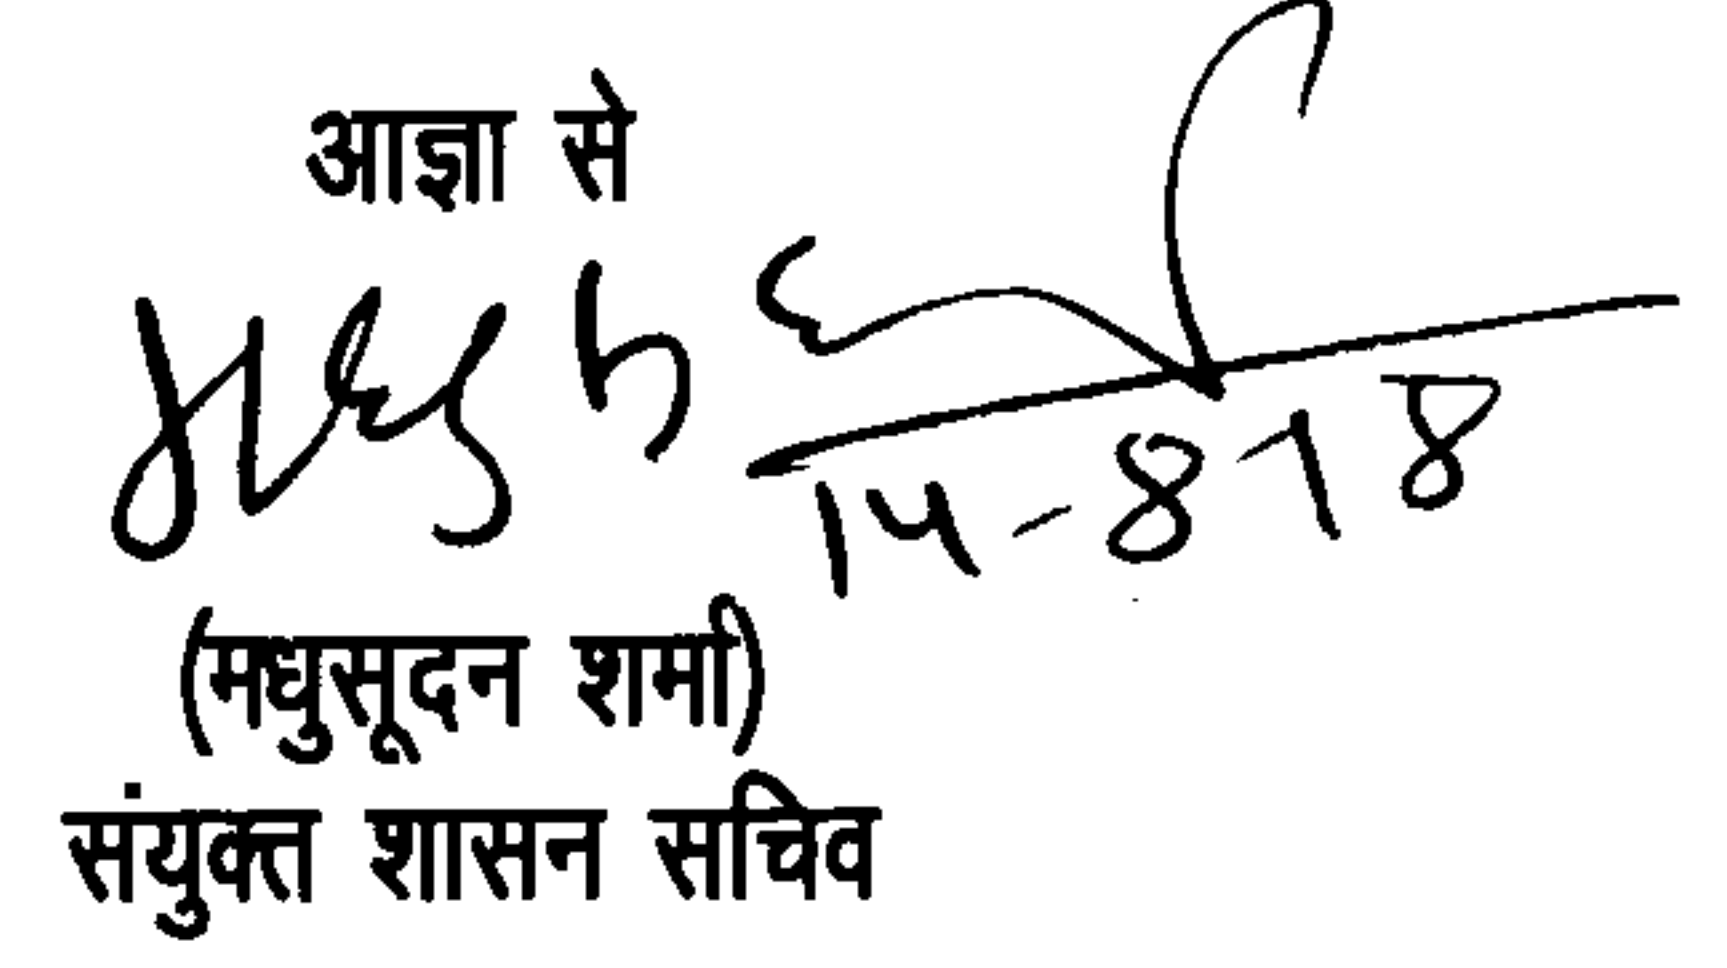 आज्ञा से
14-8-18
(मधुसूदन शर्मा)
संयुक्त शासन सचिव